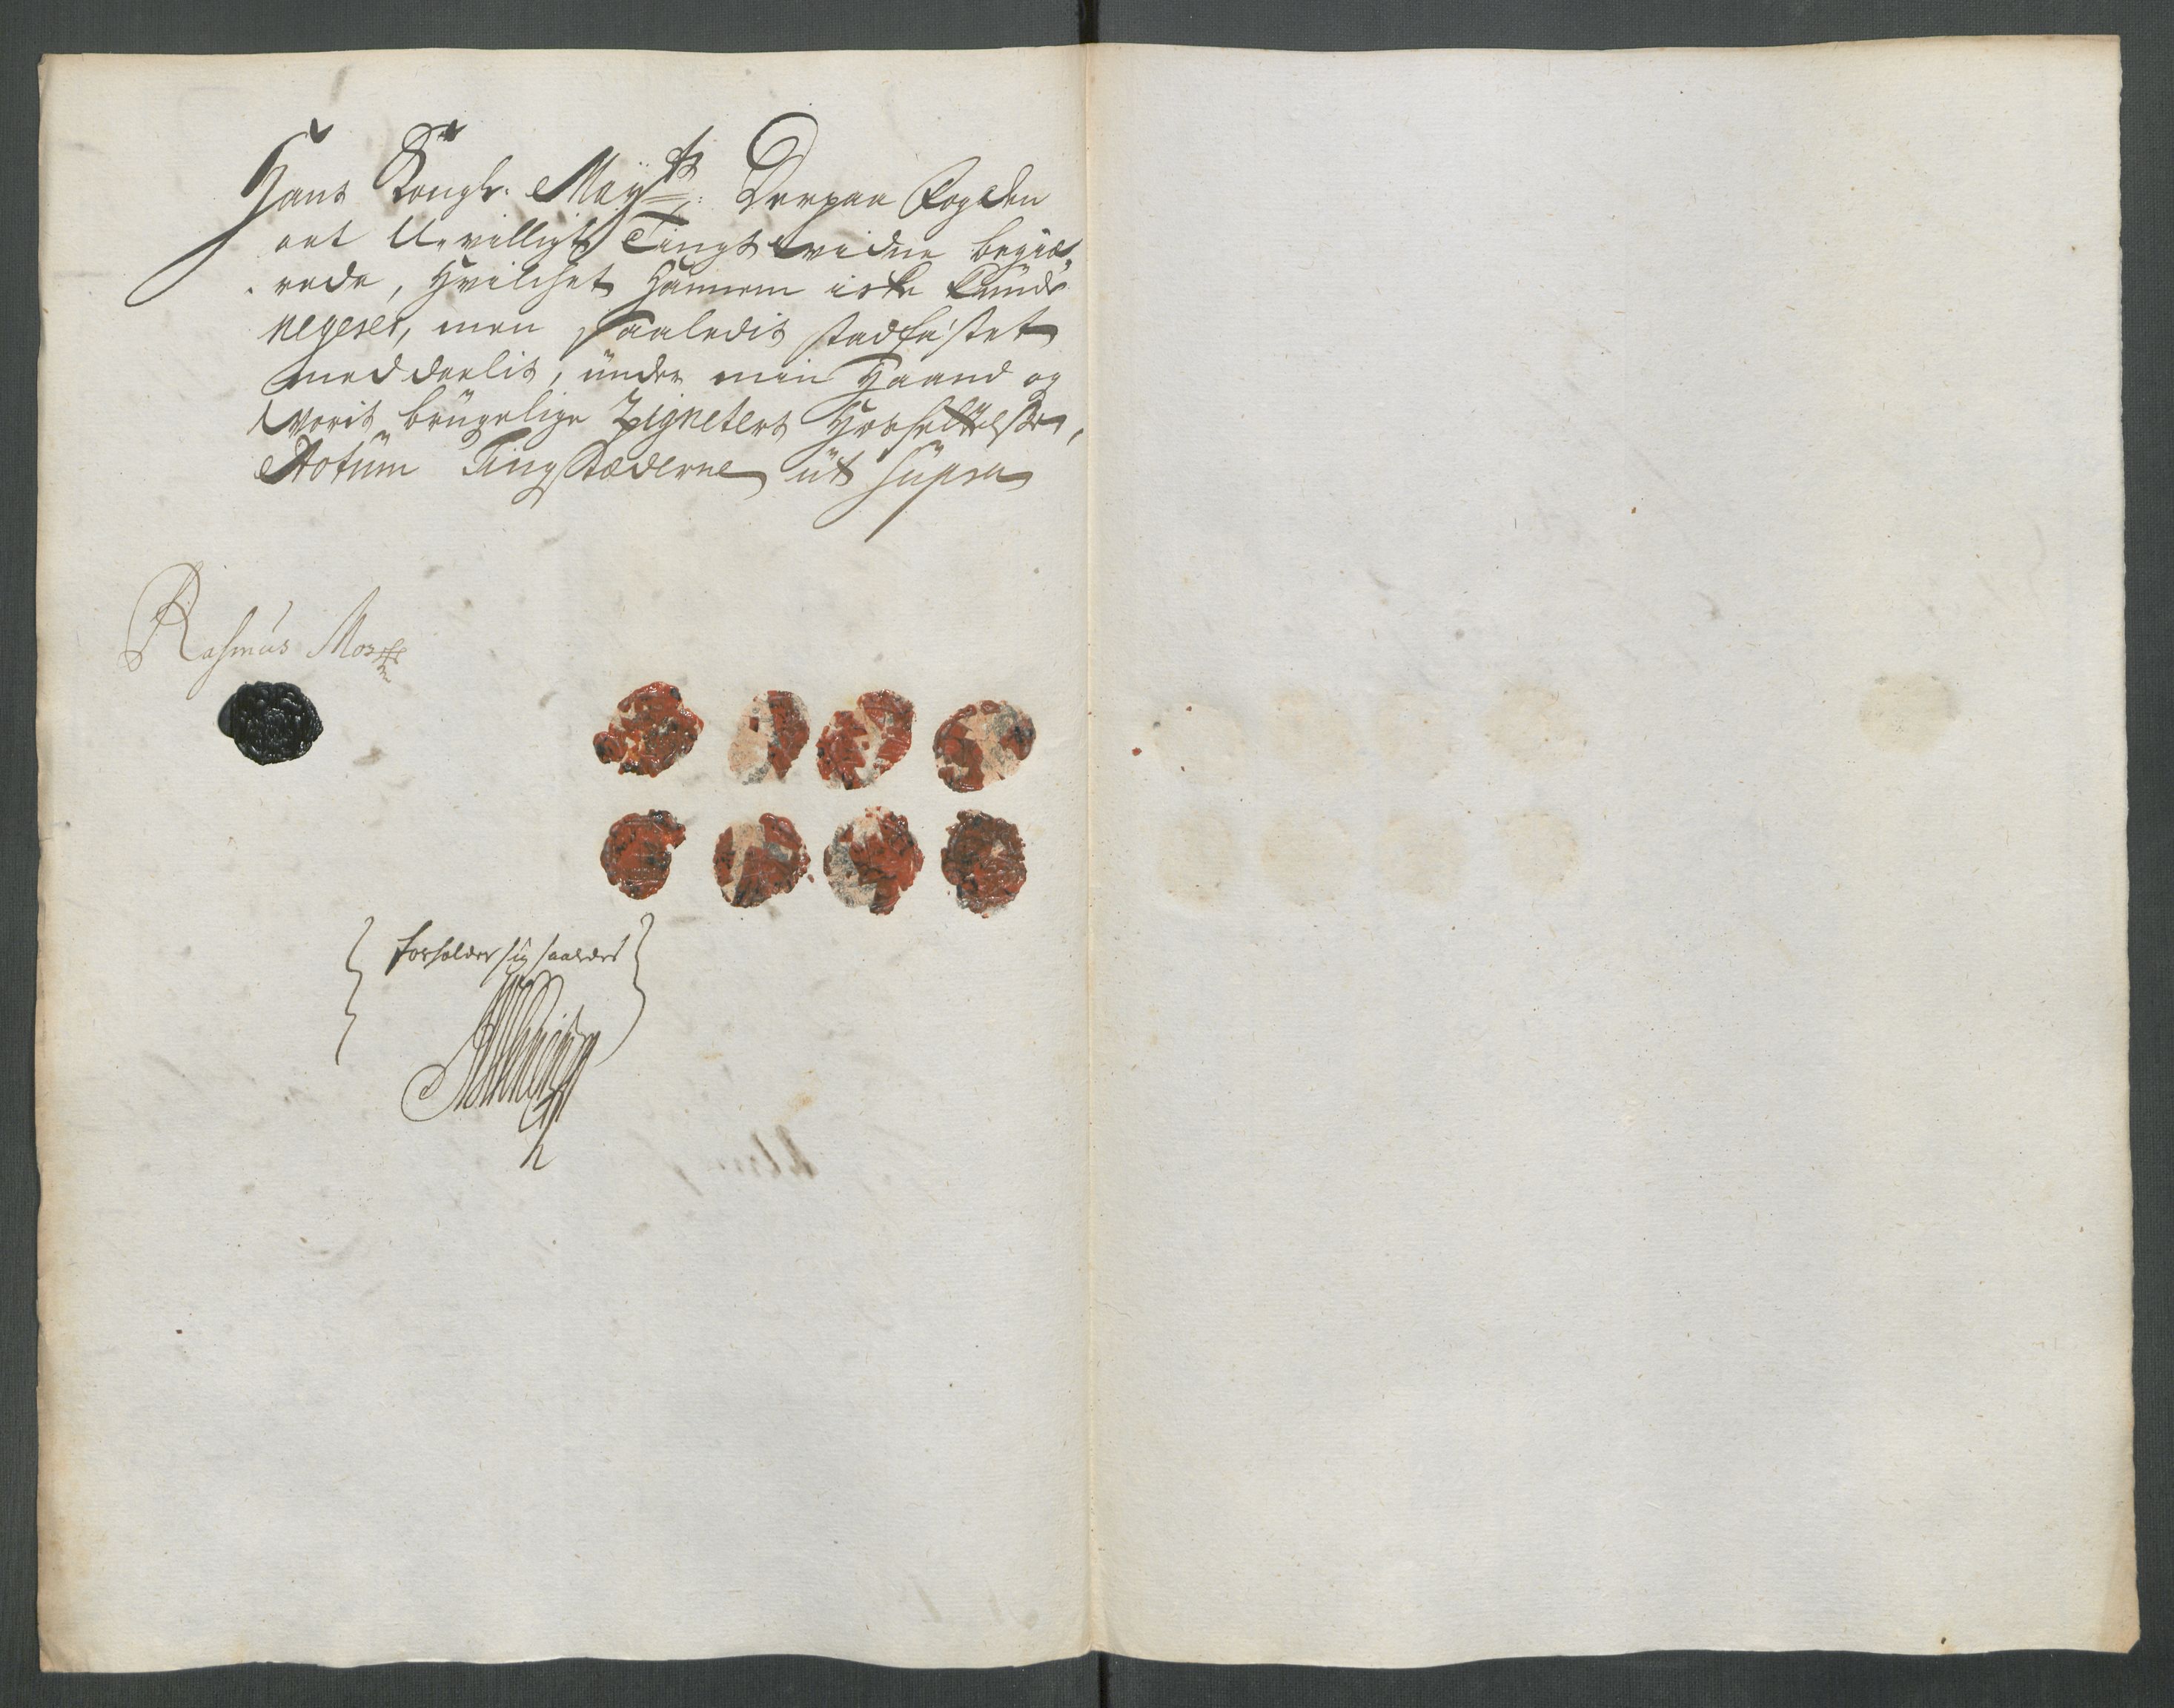 Hans Kongl. Maÿts: Derpaa Fogden
eet U-villigt Tingswidne begiæ„
rede, Hvilchet Hannem iche Künde
negeres, men Saaledis stadfæstet
meddeelis, ünder min Haand og
Woris brügelige Zigneters Hosfelttelse,
Actüm Tingstæderne üt Süpra
Rasmus
forholder sig saaledes